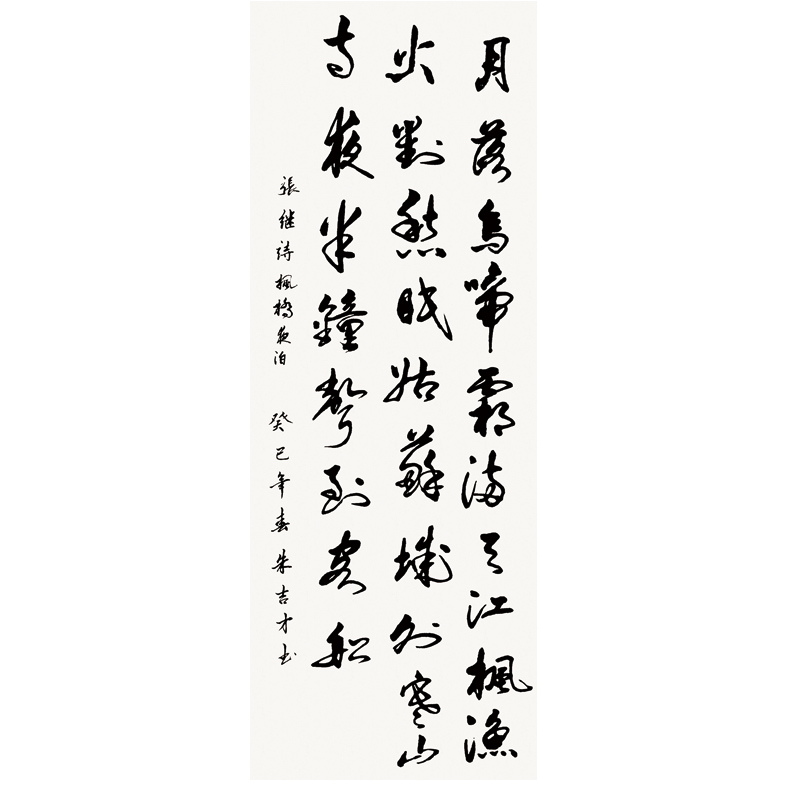 月落烏啼霜满天江楓漁
火對愁眠姑蘇城外寒山
寺夜半鐘聲到客船
張继詩楓橋夜泊 癸巳年春 朱吉才书